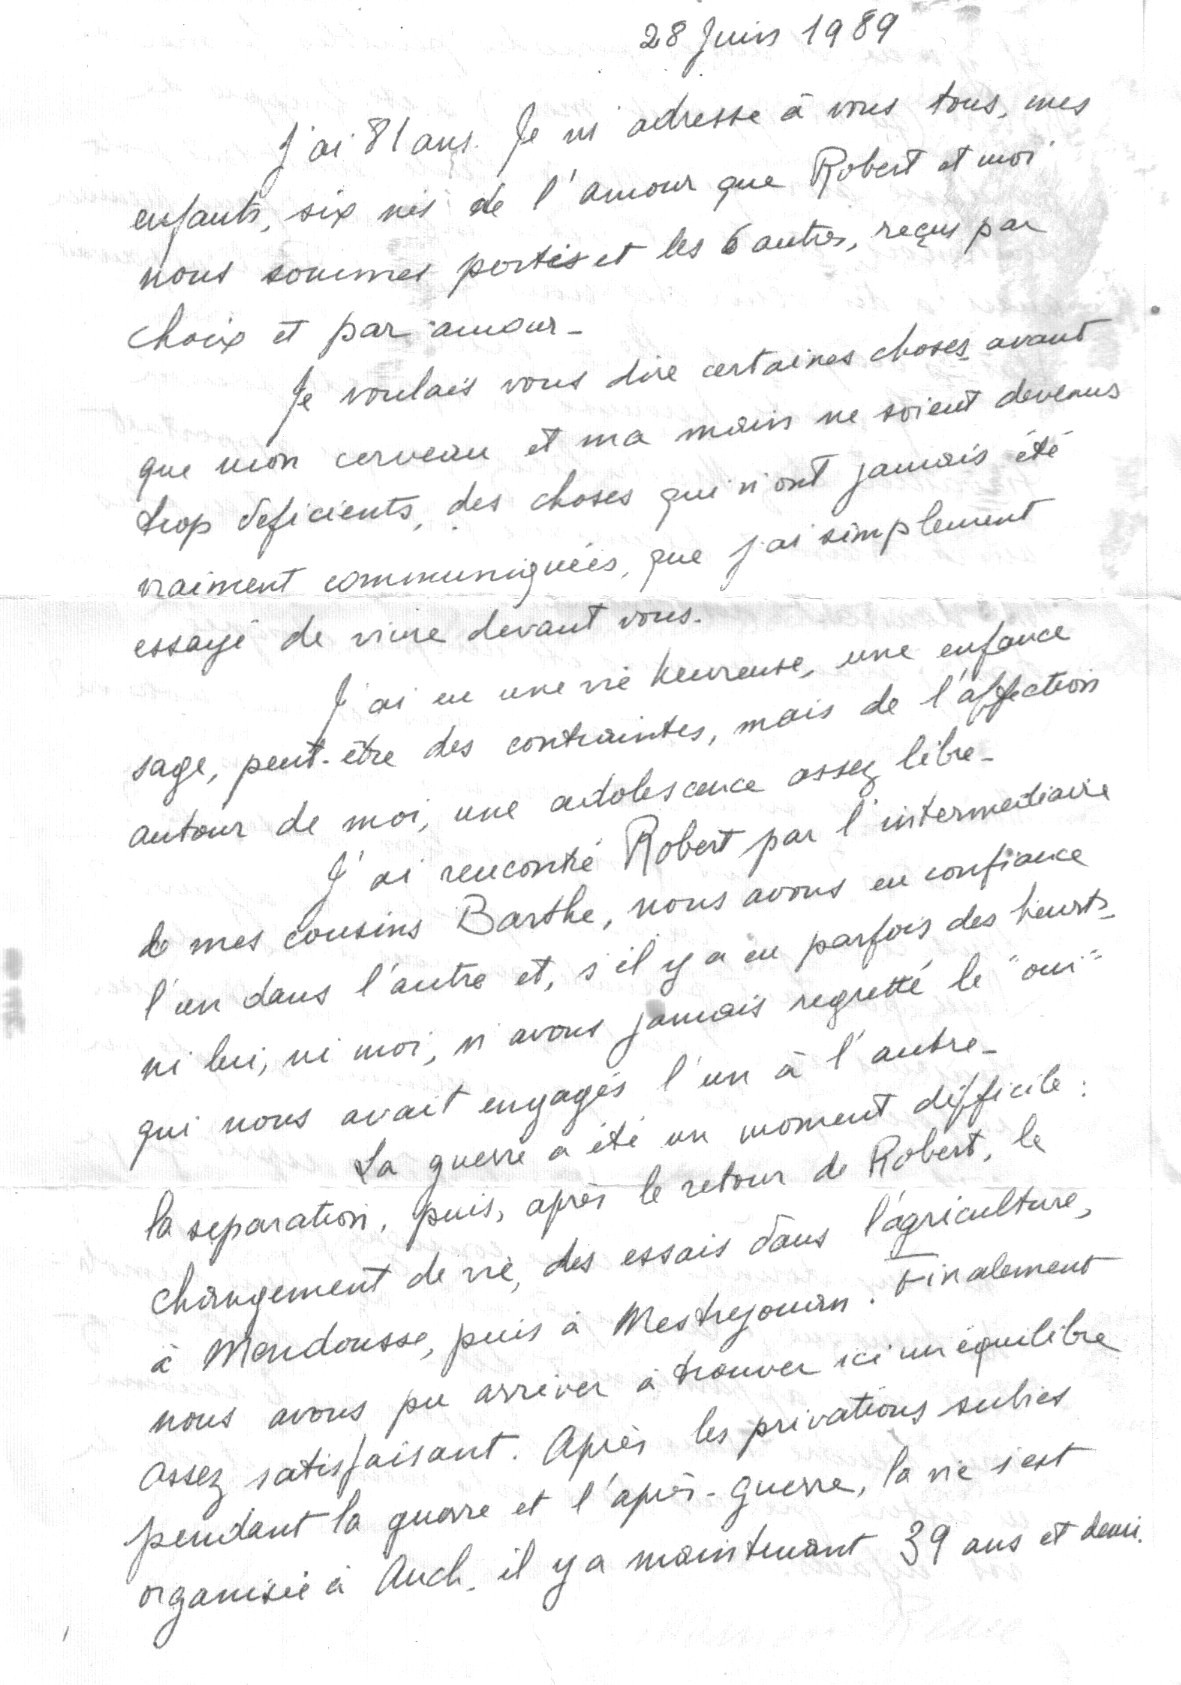 28 Juin 1989
J'ai 81 ans. Je m'adresse à vous tous, mes
enfants, six nés de l'amour que Robert et moi
nous sommes portés et les 6 autres, reçus par
choix et par amour -
Je voulais vous dire certaines choses avant
que mon cerveau et ma main ne soient devenus
trop deficients, des choses qui n'ont jamais été
vraiment communiquées, que j'ai simplement
essayé de vivre devant vous.
J'ai eu une vie heureuse, une enfance
sage, peut-être des contraintes, mais de l'affection
autour de moi, une adolescence assez libre -
J'ai rencontré Robert par l'intermediaire
de mes cousins Barthe, nous avons eu confiance
l'un dans l'autre et, s'il y a eu parfois des heurts -
ni lui, ni moi, n'avons jamais regretté le "oui"
qui nous avait engagés l'un à l'autre -
La guerre a été un moment difficile :
la separation, puis, après le retour de Robert, le
changement de vie, des essais dans l'agriculture,
à Mendousse, puis à Mestrejouan. Finalement
nous avons pu arriver à trouver ici un équilibre
assez satisfaisant. Après les privations subies
pendant la guerre et l'après-guerre, la vie s'est
organisée à Auch, il y a maintenant 39 ans et demi.